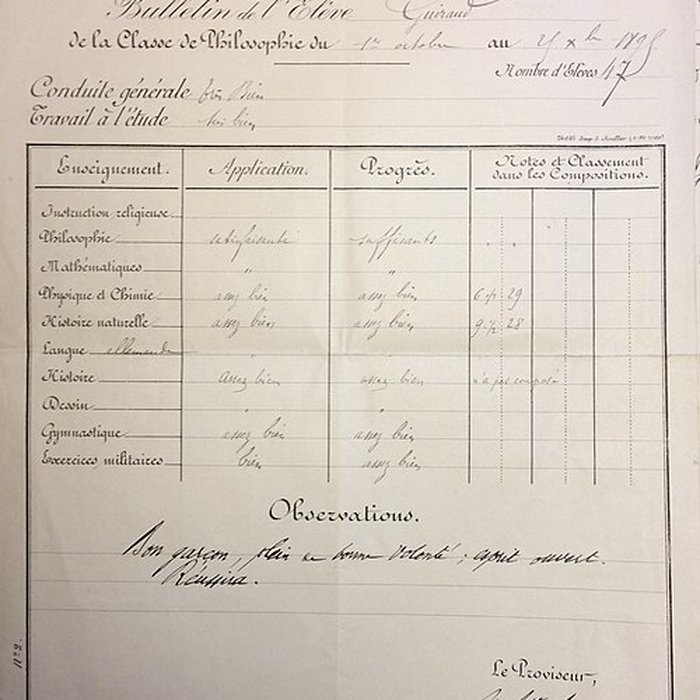 Bulletin de l'Elève Guiraud
de la Classe de Philosophie du 1er octobre au 25 Xbre 1895
Nombre d'Elèves 47
Conduite générale très Bien
Travail à l'étude très bien
Enseignement. Application. Progrès. Notes et Classement
dans les Compositions.
Instruction religieuse
Philosophie satisfaisante suffisants
Mathématiques " "
Physique et Chimie assez bien assez bien 6 ½ 29
Histoire naturelle assez bien assez bien 9 ½ 28
Langue allemande
Histoire assez bien assez bien n'a pas composé
Dessin " "
Gymnastique assez bien assez bien
Exercices militaires bien assez bien
Observations.
Bon garçon, plein de bonne volonté ; esprit ouvert.
Réussira.
N° 2.
Le Proviseur,